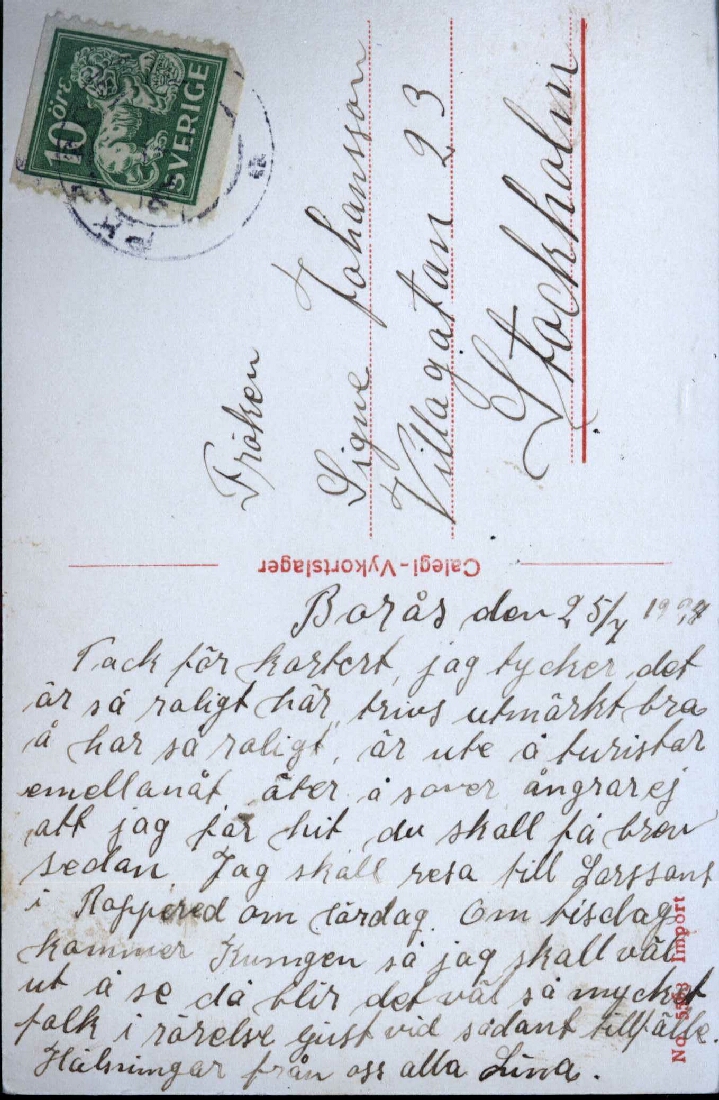 10 öre
SVERIGE
Fröken
Signe Johansson
Villagatan 23
Stockholm
Calegi-Vykortslager
Borås den 25/7
Tack för kortert, jag tycker det
är så roligt här, trivs utmärkt bra
å har så roligt, är ute å turistar
emellanåt, äter å sover ångrar ej
att jag får hit, du skall få brev
sedan Jag skall resa till Larssons
i Roppered om lördag. Om tisdag
kommer Kungen så jag skall väl
ut å se då blir det väl så mycket
folk i rörelse just vid sådant tillfälle.
Hälsningar från oss alla
No. 5503 Import